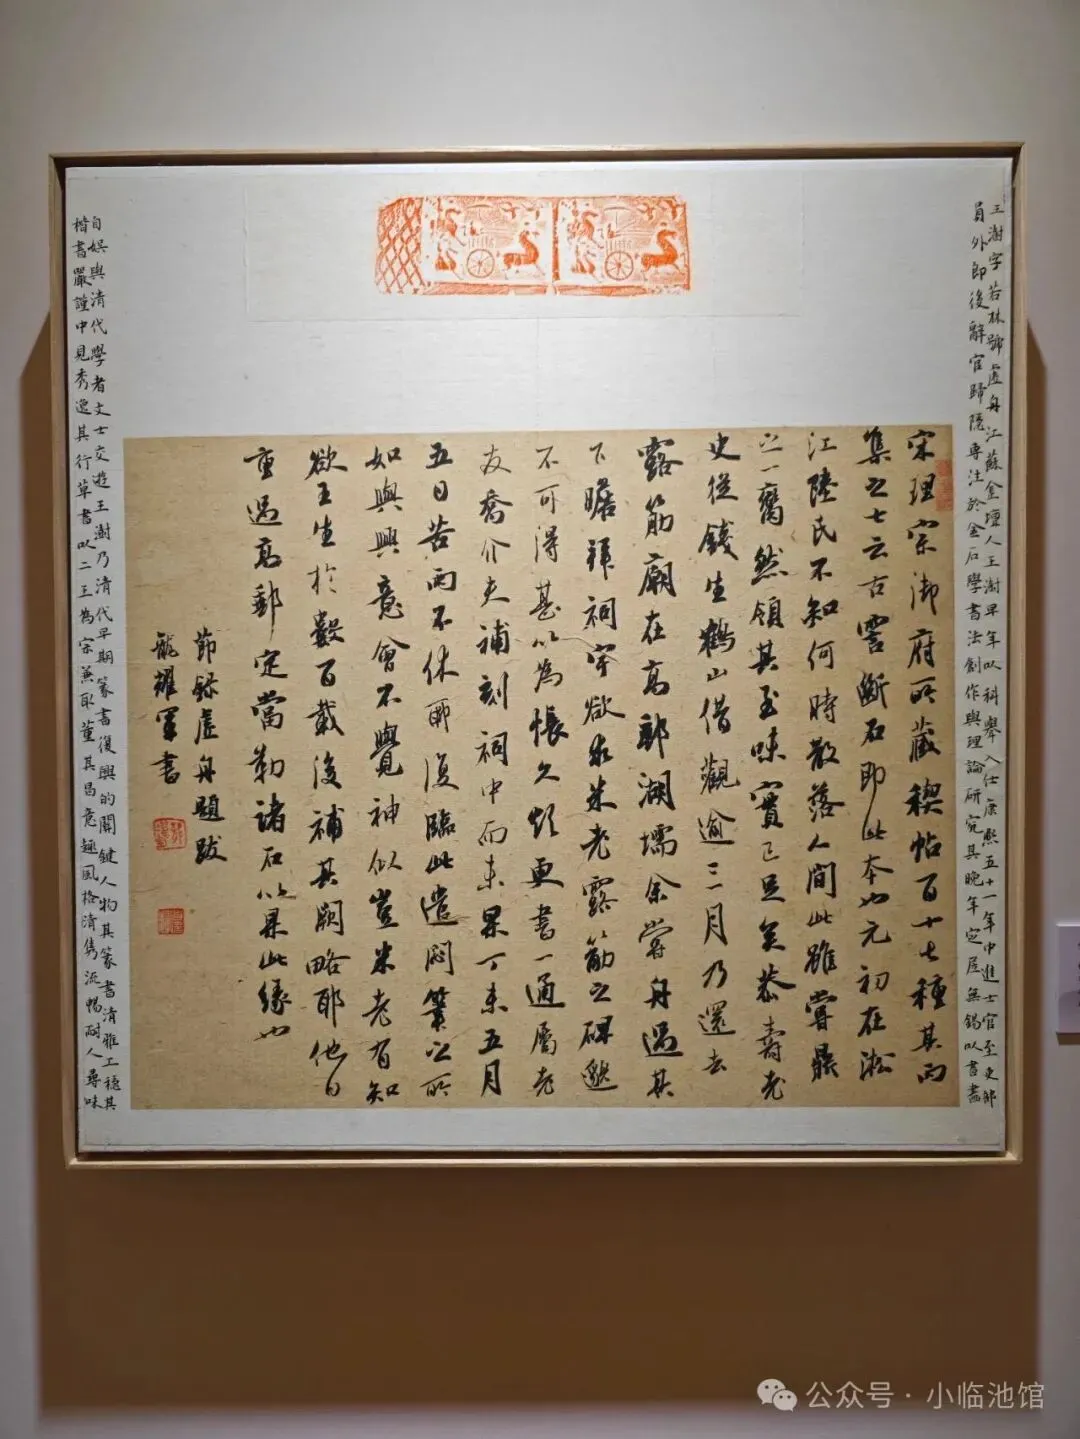 王澍字若林號虛舟江蘇金壇人王澍早年以科舉入仕康熙五十一年中進士官至吏部
員外郎後辭官歸隱專注於金石學書法創作與理論研究其晚年定居無錫以書畫
宋理宗御府所藏禊帖百十七種其丙
集之七云古雲斷石即此本也元初在淞
江陸民不知何時散落人間此雖嘗鼎
之一臠然領其至味實已足矣恭壽老
史從錢生鶴山借觀逾三月乃還去
露筋廟在高郵湖壖余嘗舟過其
下瞻拜祠宇欲求米老露筋之碑邈
不可得甚以為悵久頃更書一通屬老
友喬介夫補刻祠中而未果丁未五月
五日苦雨不休聊復臨此遣悶筆之所
如與興意會不覺神似豈米老有知
欲王生於數百載後補其闕略耶他日
重過高郵定當勒諸石以果此緣也
節錄虛舟題跋
龍耀軍書
自娛與清代學者文士交遊王澍乃清代早期篆書復興的關鍵人物其篆書清雅工穩其
楷書嚴謹中見秀逸其行草書以二王為宗兼取董其昌意趣風格清雋流暢耐人尋味
公众号·小临池馆